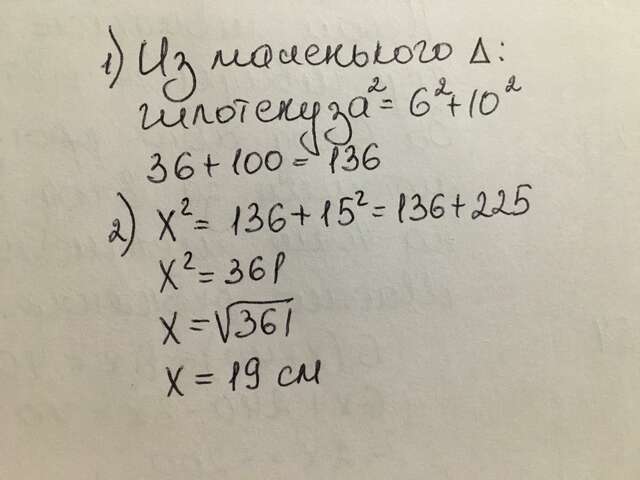 1) Из маленького Δ:
гипотенуза² = 6² + 10²
36 + 100 = 136
2) x² = 136 + 15² = 136 + 225
x² = 361
x = √361
x = 19 см